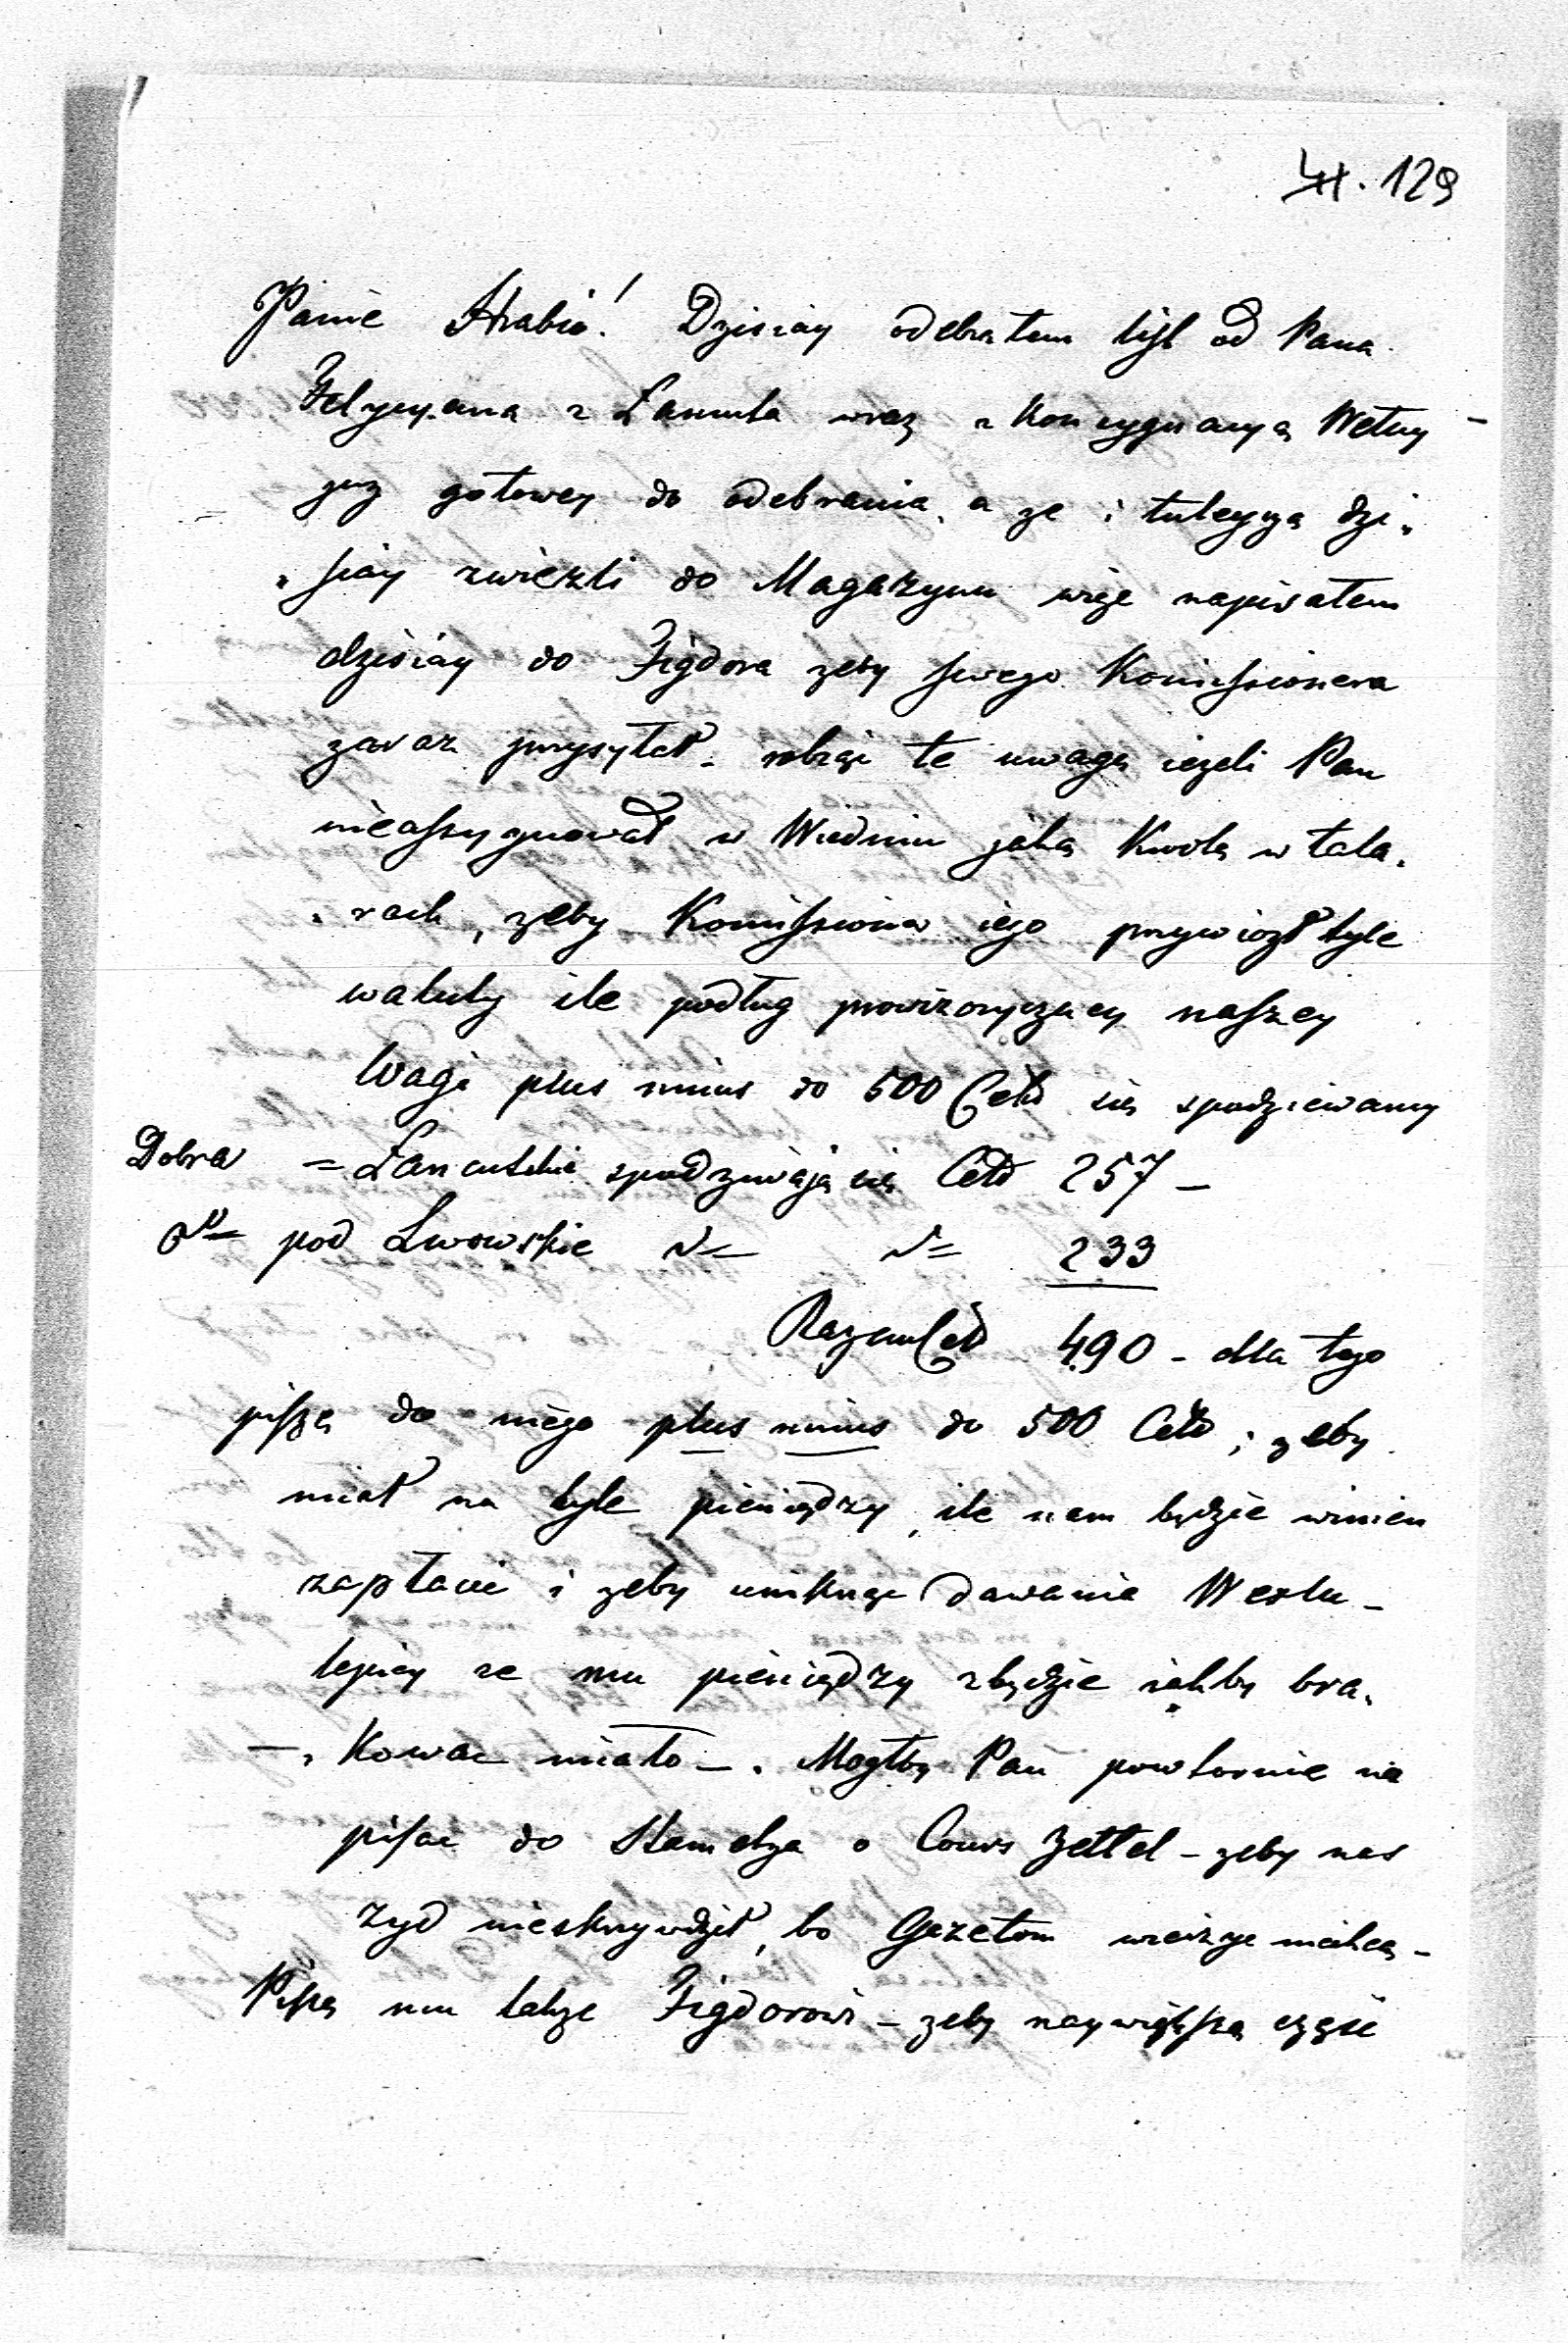 129
Panie Hrabio! Dzisiay odebrałem list od Pana
Felycyana z Łancuta wraz z Konsygnacyą Wełny
juz gotowey do odebrania, a ze i tuteyszą dzi„
„siay zwiezli do Magazynu więc napisałem
dzisiay do Figdora zeby swego Komissionera
zaraz przysyłał - robiąc te uwagę iezeli Pan
nieassygnował w Wiedniu jaką Kwotę w tala„
„rach, zeby Komissioner iego przywiozł tyle
waluty ile podług prowizoryczney naszey
Wagi plus minus do 500 Cetn się spodziewamy
Dobra = Łancutskie spodziewają się Cetn 257 -
dto pod Lwowskie dto dto 233
Razem Cetn 490 - dla tego
piszę do niego plus minus do 500 Cetn, zeby
miał na tyle pieniędzy, ile nam będzie winien
zapłacic i zeby uniknąc dawania Wexlu -
lepiey ze mu pieniędzy zbędzie iakby bra„
„kowac miało -. Mogłby Pan powtornie na
pisac do Stametza o Cours Zettel - zeby nas
zyd nieskrzywdził, bo Gazetom wierzyc niechcą -
Piszę mu takze Figdorowi - zeby naywiększą częsc